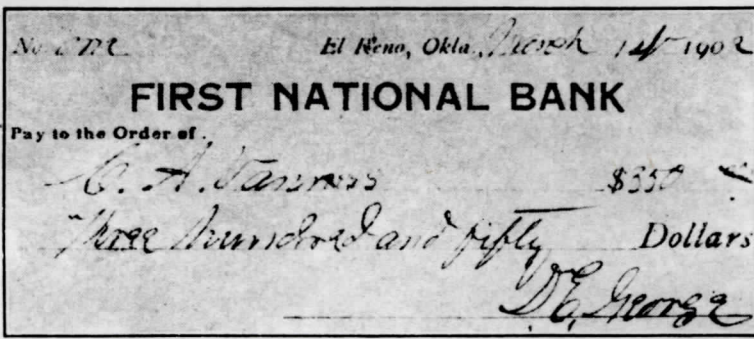 No. One El Reno, Okla. March 14 1902
FIRST NATIONAL BANK
Pay to the Order of
C. A. Tanners $350
Three hundred and fifty Dollars
D E, George